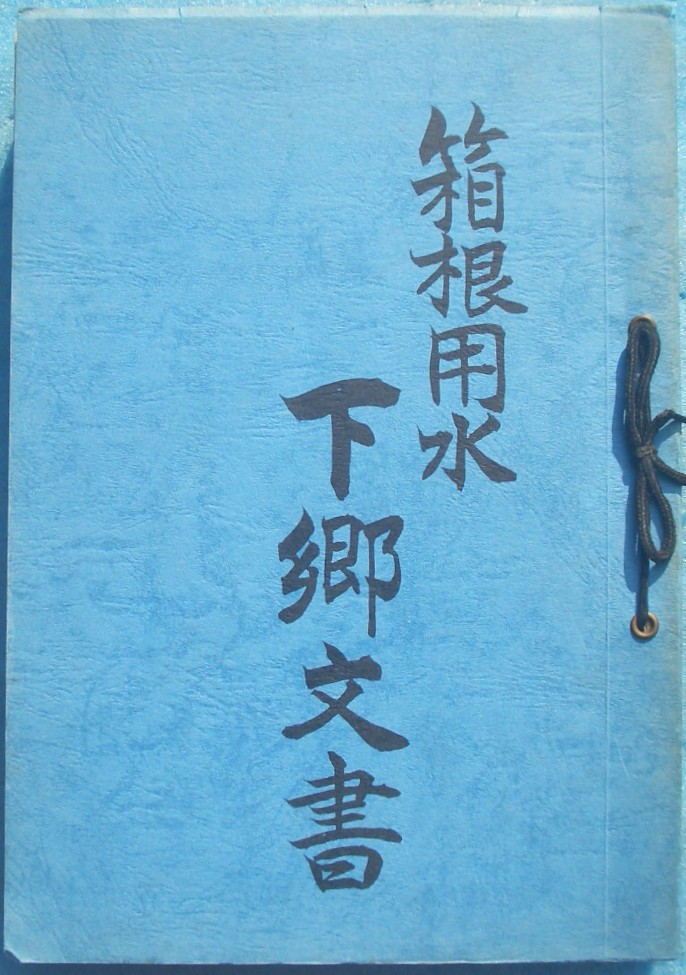 箱根用水
下郷文書